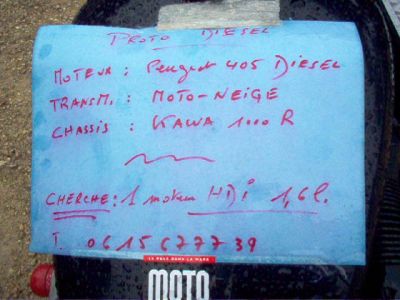 PROTO DIESEL
MOTEUR : Peugeot 405 DIESEL
TRANSM. : MOTO-NEIGE
CHASSIS : KAWA 1000 R
CHERCHE : 1 moteur HDi 1,6 l.
T. 0615677739
LE POLE DANS LA MARE
MOTO